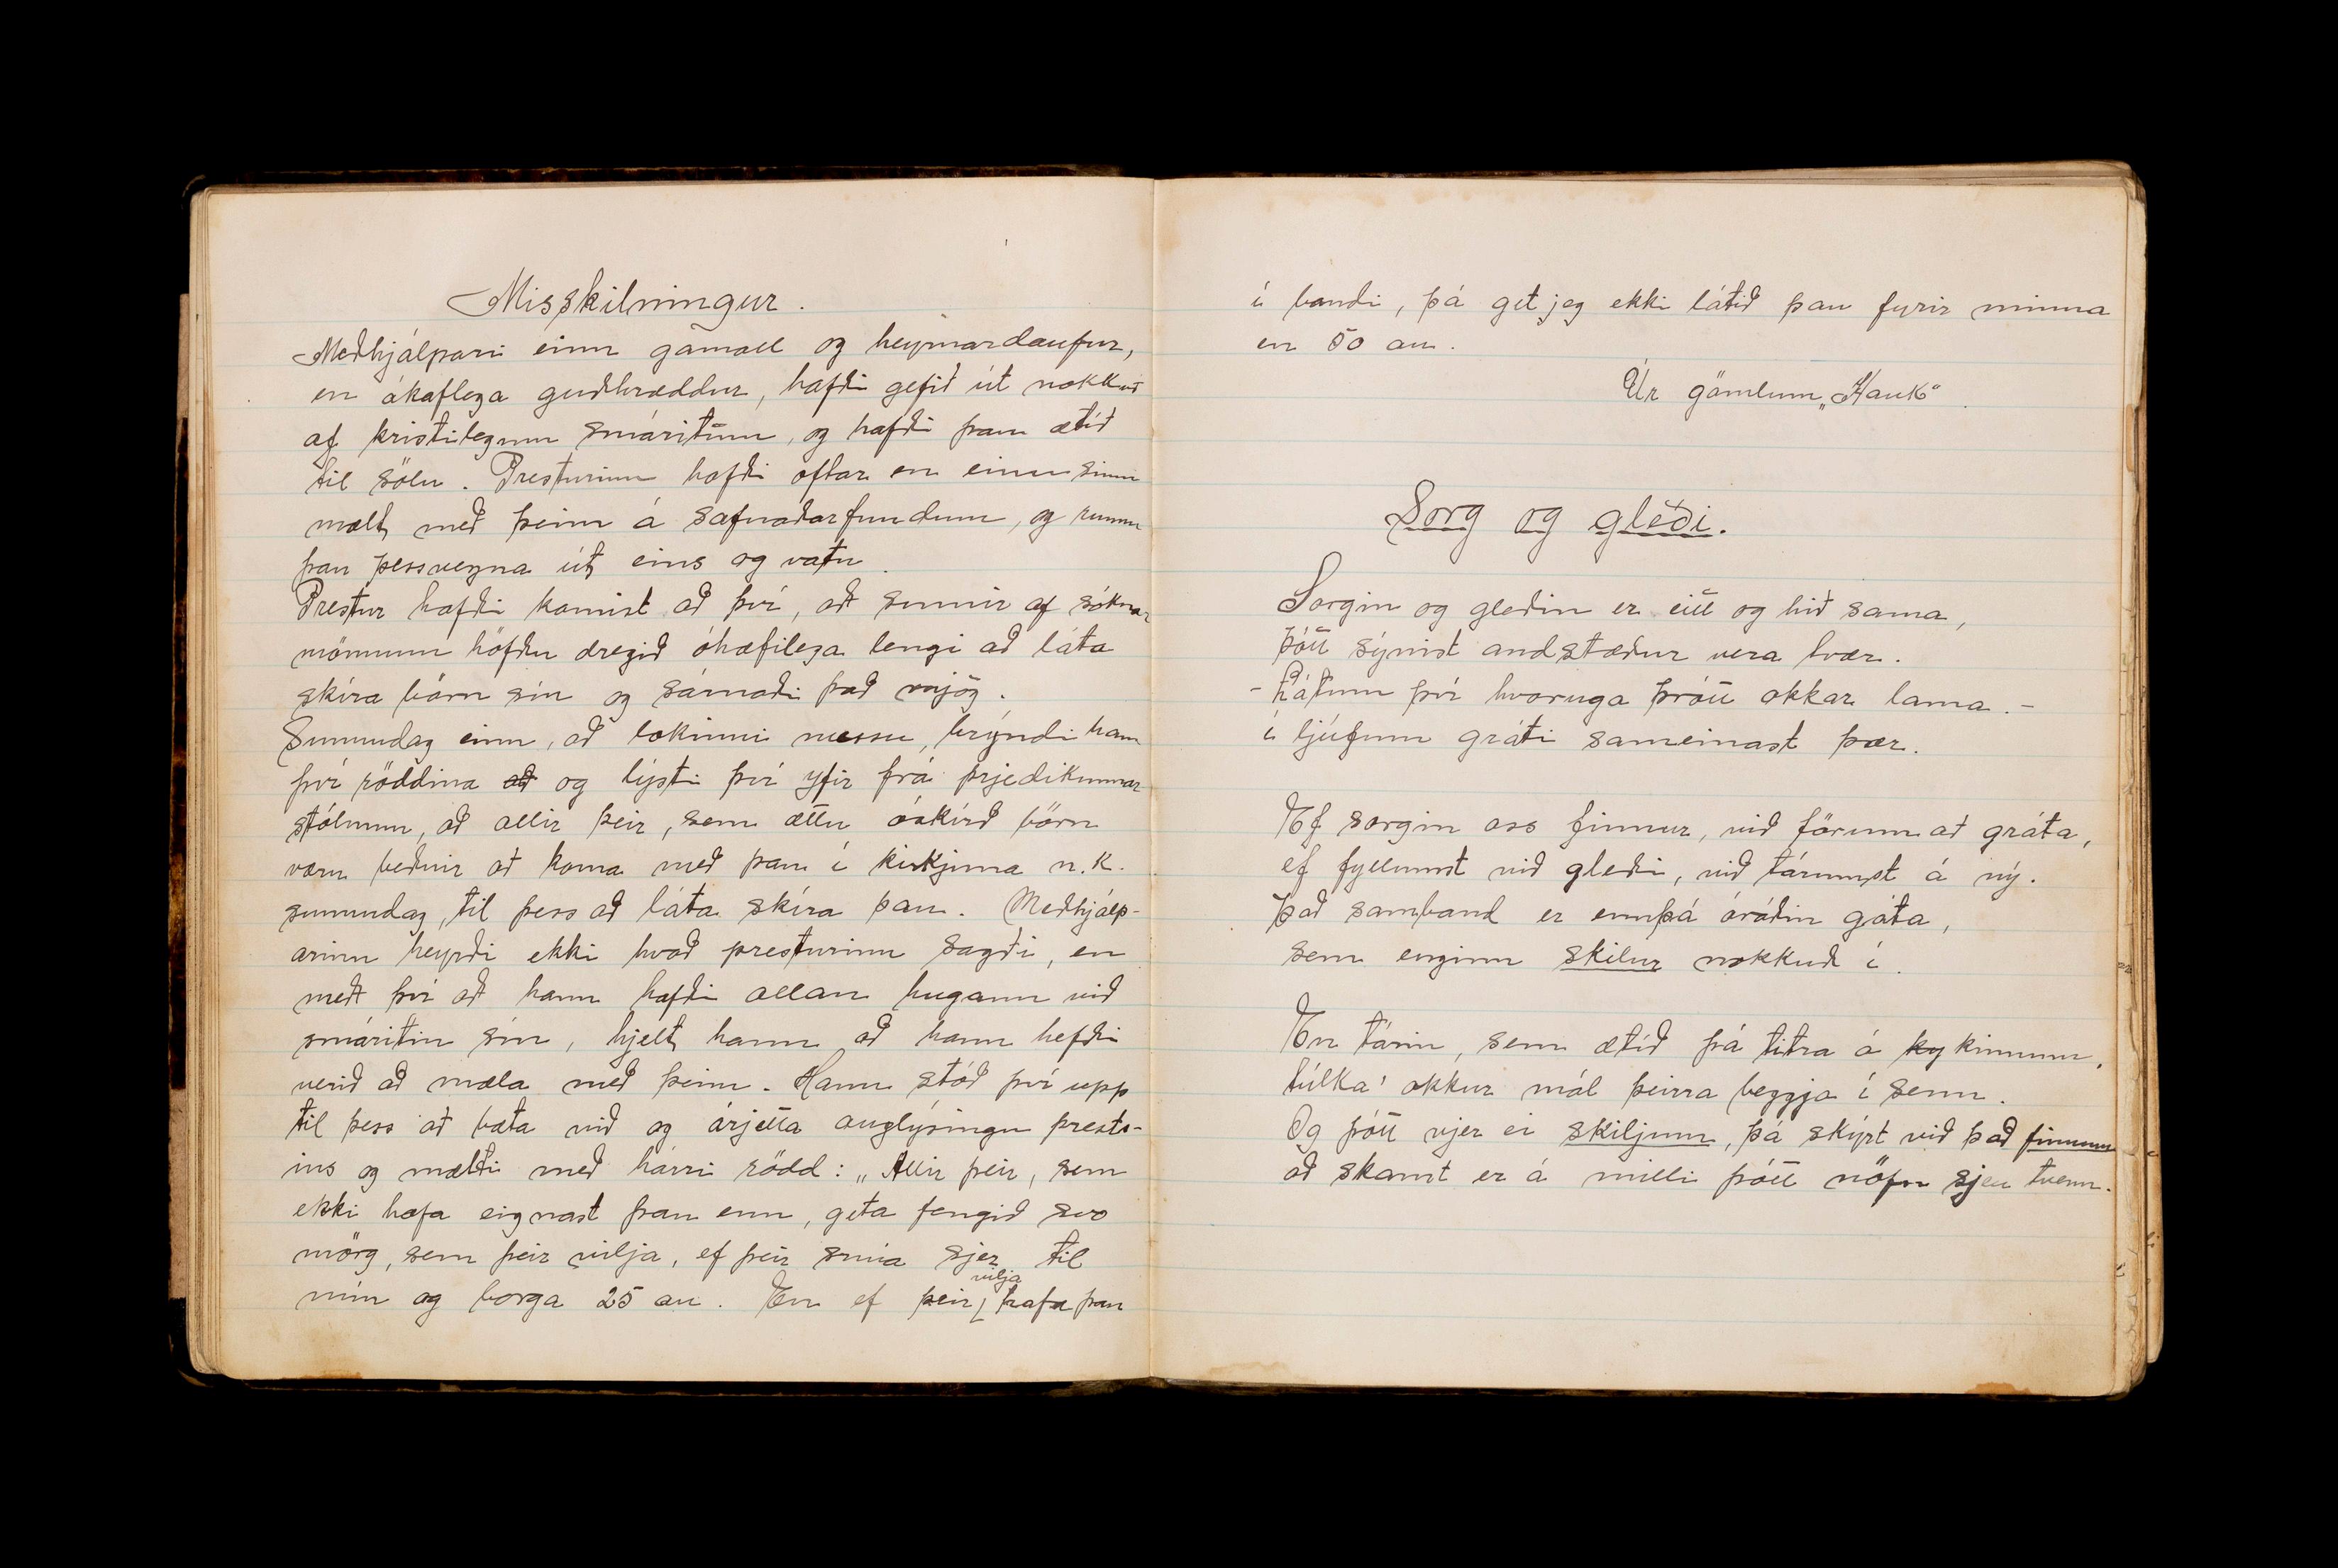 Misskilningur.
Meðhjálpari einn gamall og heyrnardaufur,
en ákaflega guðhræddur, hafði gefið út nokkuð
af kristilegum smáritum, og hafði þau ætíð
til sölu. Presturinn hafði oftar en einu sinni
mælt með þeim á safnaðarfundum, og runnu
þau þessvegna út eins og vatn.
Prestur hafði komist að því, að sumir af sóknar
mönnum höfðu dregið óhæfilega lengi að láta
skíra börn sín og sárnaði það mjög.
Sunnudag einn, að lokinni messu, brýndi hann
því röddina að og lýsti því yfir frá prjedikunnar
stólnum, að allir þeir, sem ættu óskírð börn
væru beðnir að koma með þau í kirkjuna n.k.
sunnudag, til þess að láta skíra þau. Meðhjálp-
arinn heyrði ekki hvað presturinn sagði, en
með því að hann hafði allan hugann við
smáritin sín, hjelt hann að hann hefði
verið að mæla með þeim. Hann stóð því upp
til þess að bæta við og árjetta auglýsingu prests-
ins og mælti með hárri rödd: „Allir þeir, sem
ekki hafa eignast þau enn, geta fengið svo
mörg, sem þeir vilja, ef þeir snúa sjer til
mín og borga 25 au. En ef þeir vilja hafa þau
í bandi, þá get jeg ekki látið þau fyrir minna
en 50 au.
Úr gömlum „Hauk“.
Sorg og gleði.
Sorgin og gleðin er eitt og hið sama,
þótt sýnist andstæður vera tvær.
- Látum því hvoruga þrótt okkar lama. -
í ljúfum gráti sameinast þær.
Ef sorgin oss finnur, við förum að gráta,
ef fyllumst við gleði, við tárumst á ný.
Það samband er ennþá óráðin gáta,
sem enginn skilur nokkuð í.
En tárin, sem ætíð þá titra á ky kinnum,
túlka' okkur mál þeirra beggja í senn.
Og þótt vjer ei skiljum, þá skýrt við það finnum
að skamt er á milli þótt nöfn sjeu tvenn.